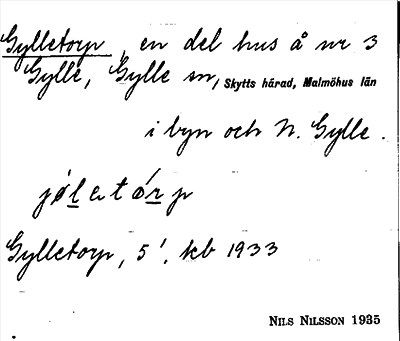 Gylletorp, en del hus å nr 3
Gylle, Gylle sn, Skytts härad, Malmöhus län
i byn och N. Gylle.
jǿletǿrp
Gylletorp, 5', kb 1933
NILS NILSSON 1935